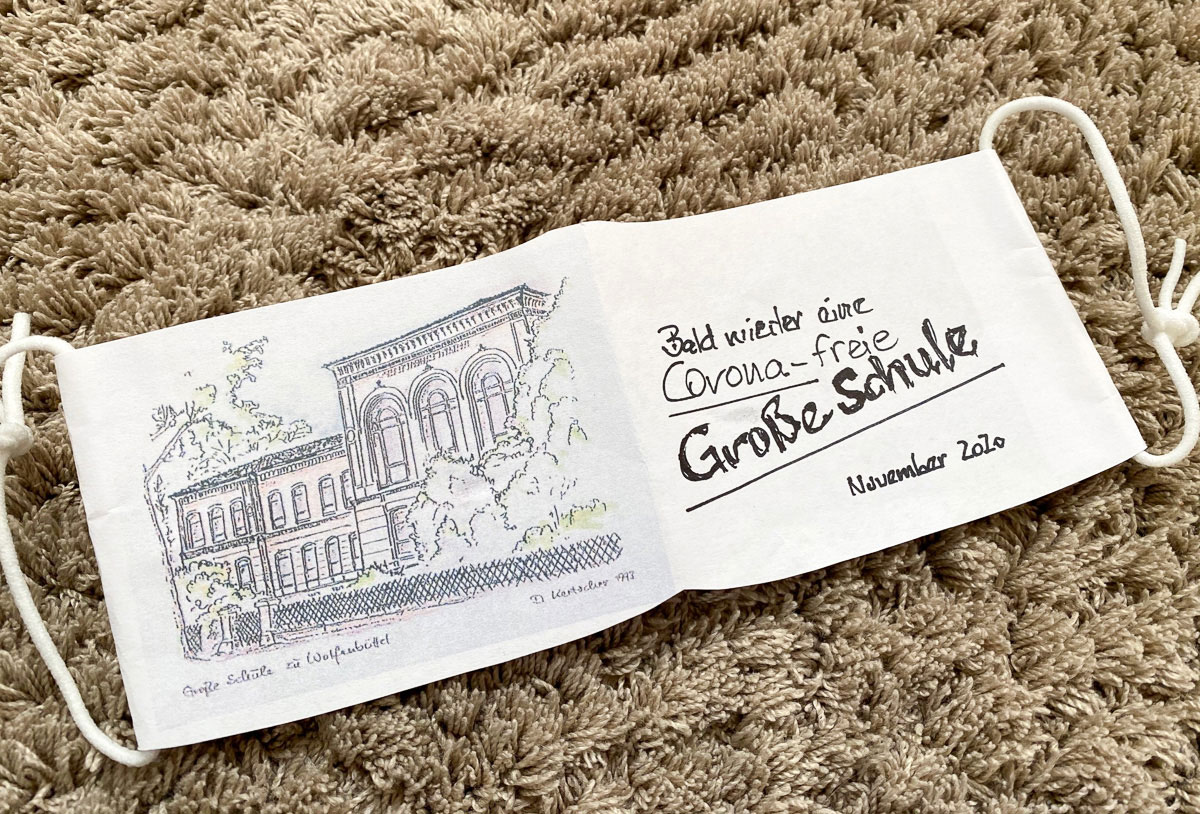 Große Schule zu Wolfenbüttel
1993
Bald wieder eine
Corona-freie
Große Schule
November 2020